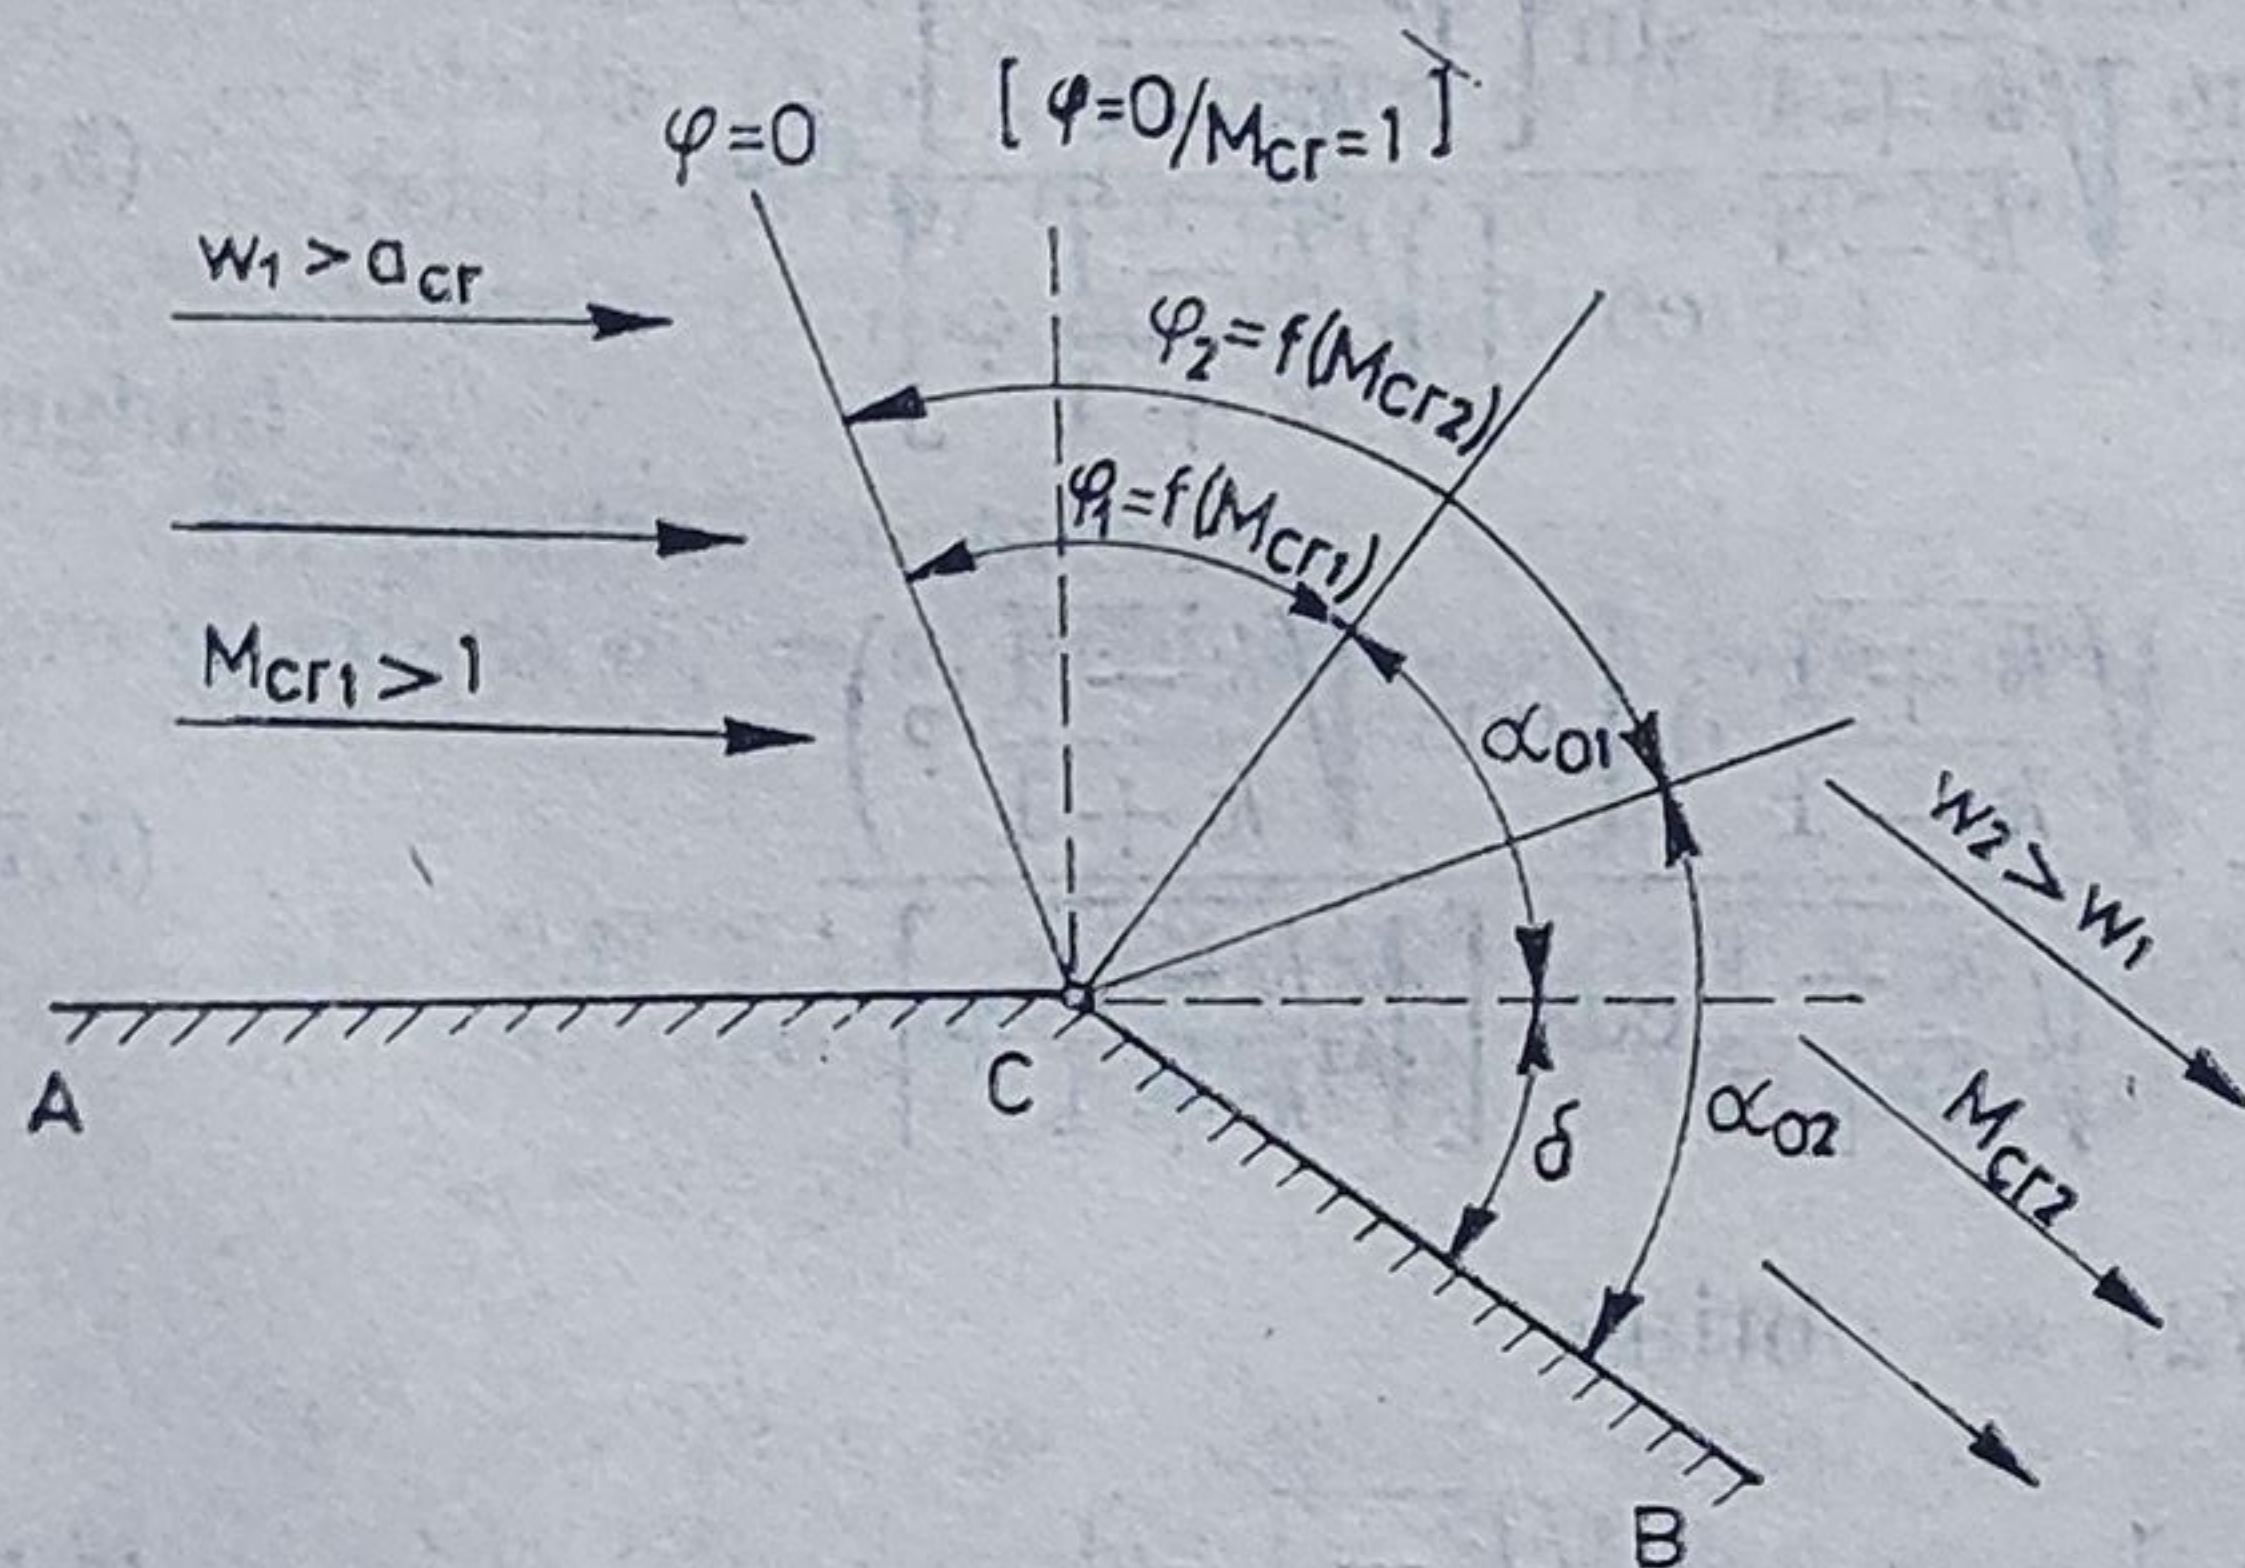 φ=0
[ φ=0/Mcr=1 ]
w1 > acr
φ2=f(Mcr2)
φ1=f(Mcr1)
Mcr1>1
α01
w2 > w1
A
C
δ
α02
Mcr2
B